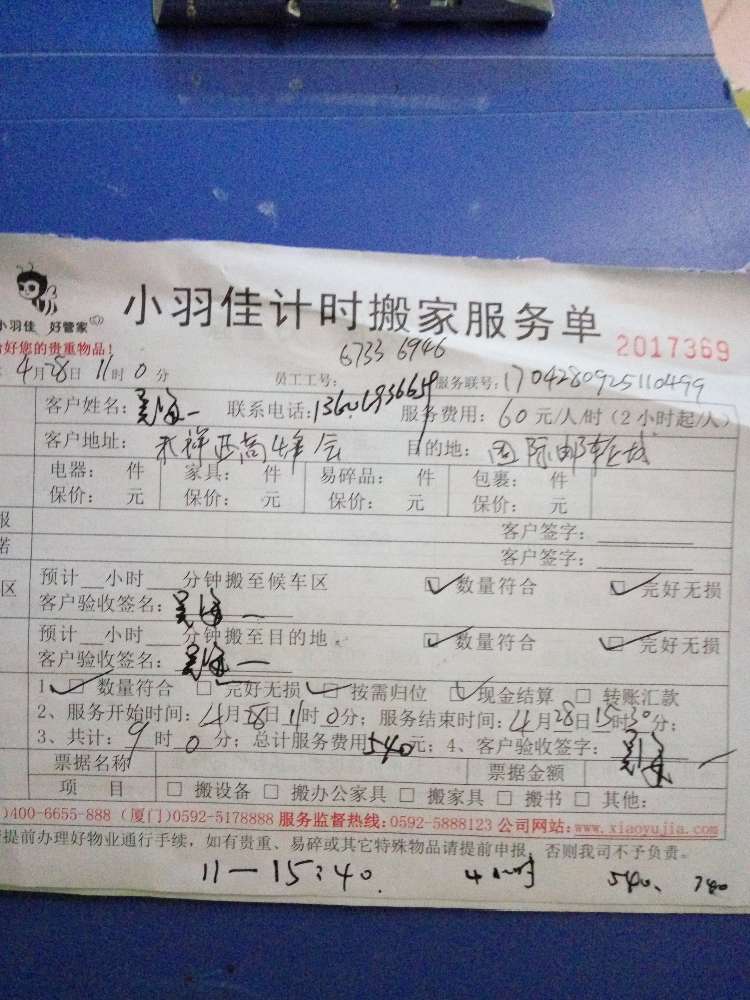 小羽佳 好管家
小羽佳计时搬家服务单
2017369
好您的贵重物品!
6733 6946
4月28日 11时0分 员工工号: 服务联号:1704280925110499
客户姓名: 联系电话: 服务费用:60元/人/时(2小时起/人)
客户地址: 目的地:国际邮轮城
电器: 件 家具: 件 易碎品: 件 包裹: 件
保价: 元 保价: 元 保价: 元 保价: 元
报 客户签字:
诺 客户签字:
区 预计 小时 分钟搬至候车区 数量符合 完好无损
客户验收签名:
预计 小时 分钟搬至目的地 数量符合 完好无损
客户验收签名:
1、 数量符合 完好无损 按需归位 现金结算 转账汇款
2、服务开始时间:4月28日11时0分;服务结束时间:4月28日15时30分;
3、共计:9时0分;总计服务费用540元;4、客户验收签字:
票据名称 票据金额
项 目 搬设备 搬办公家具 搬家具 搬书 其他:
)400-6655-888 (厦门)0592-5178888 服务监督热线:0592-5888123 公司网站:www.xiaoyujia.com
提前办理好物业通行手续,如有贵重、易碎或其它特殊物品请提前申报,否则我司不予负责。
11-15:40. 4小时 540、